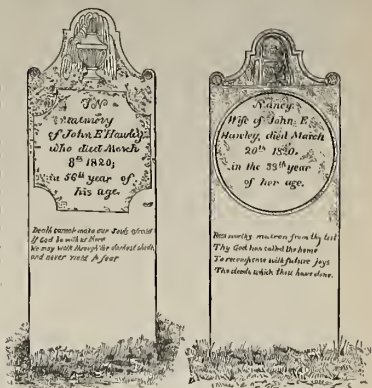 IN
memory
of John E Hawley
who died March
8th 1820;
in 56th year of
his age.
Death cannot make our Souls afraid
If God be with us there
We may walk through the darkest shade
and never yield to fear
Nancy
Wife of John E
Hawley, died March
20th 1820.
in the 39th year
of her age.
Rest worthy matron from thy toil
Thy God has called the home
To recompense with future joys
The deeds which thou have done.